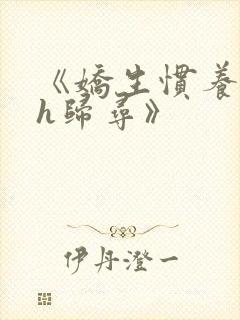 《嬌生慣養
h歸尋》
伊丹澄一